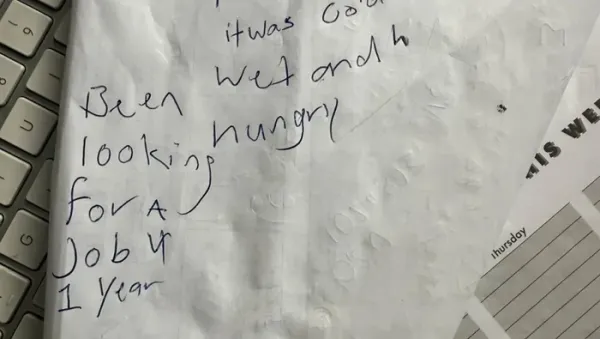 itwas Cold
wet and h
hungry
Been
looking
for A
Job
1 Year
HIS WE
Thursday
U
G